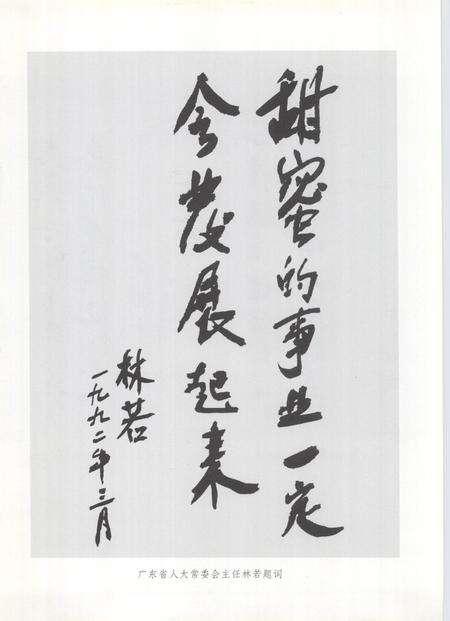 甜蜜的事业一定
会发展起来
林若
一九九二年三月
广东省人大常委会主任林若题词